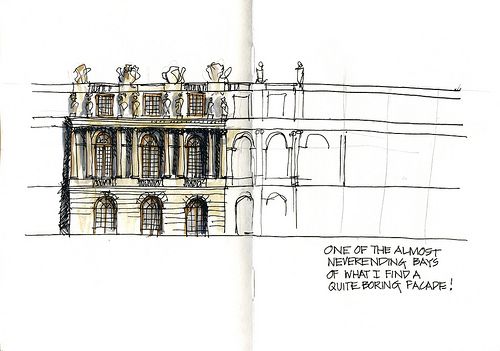 ONE OF THE ALMOST
NEVERENDING BAYS
OF WHAT I FIND A
QUITE BORING FACADE!